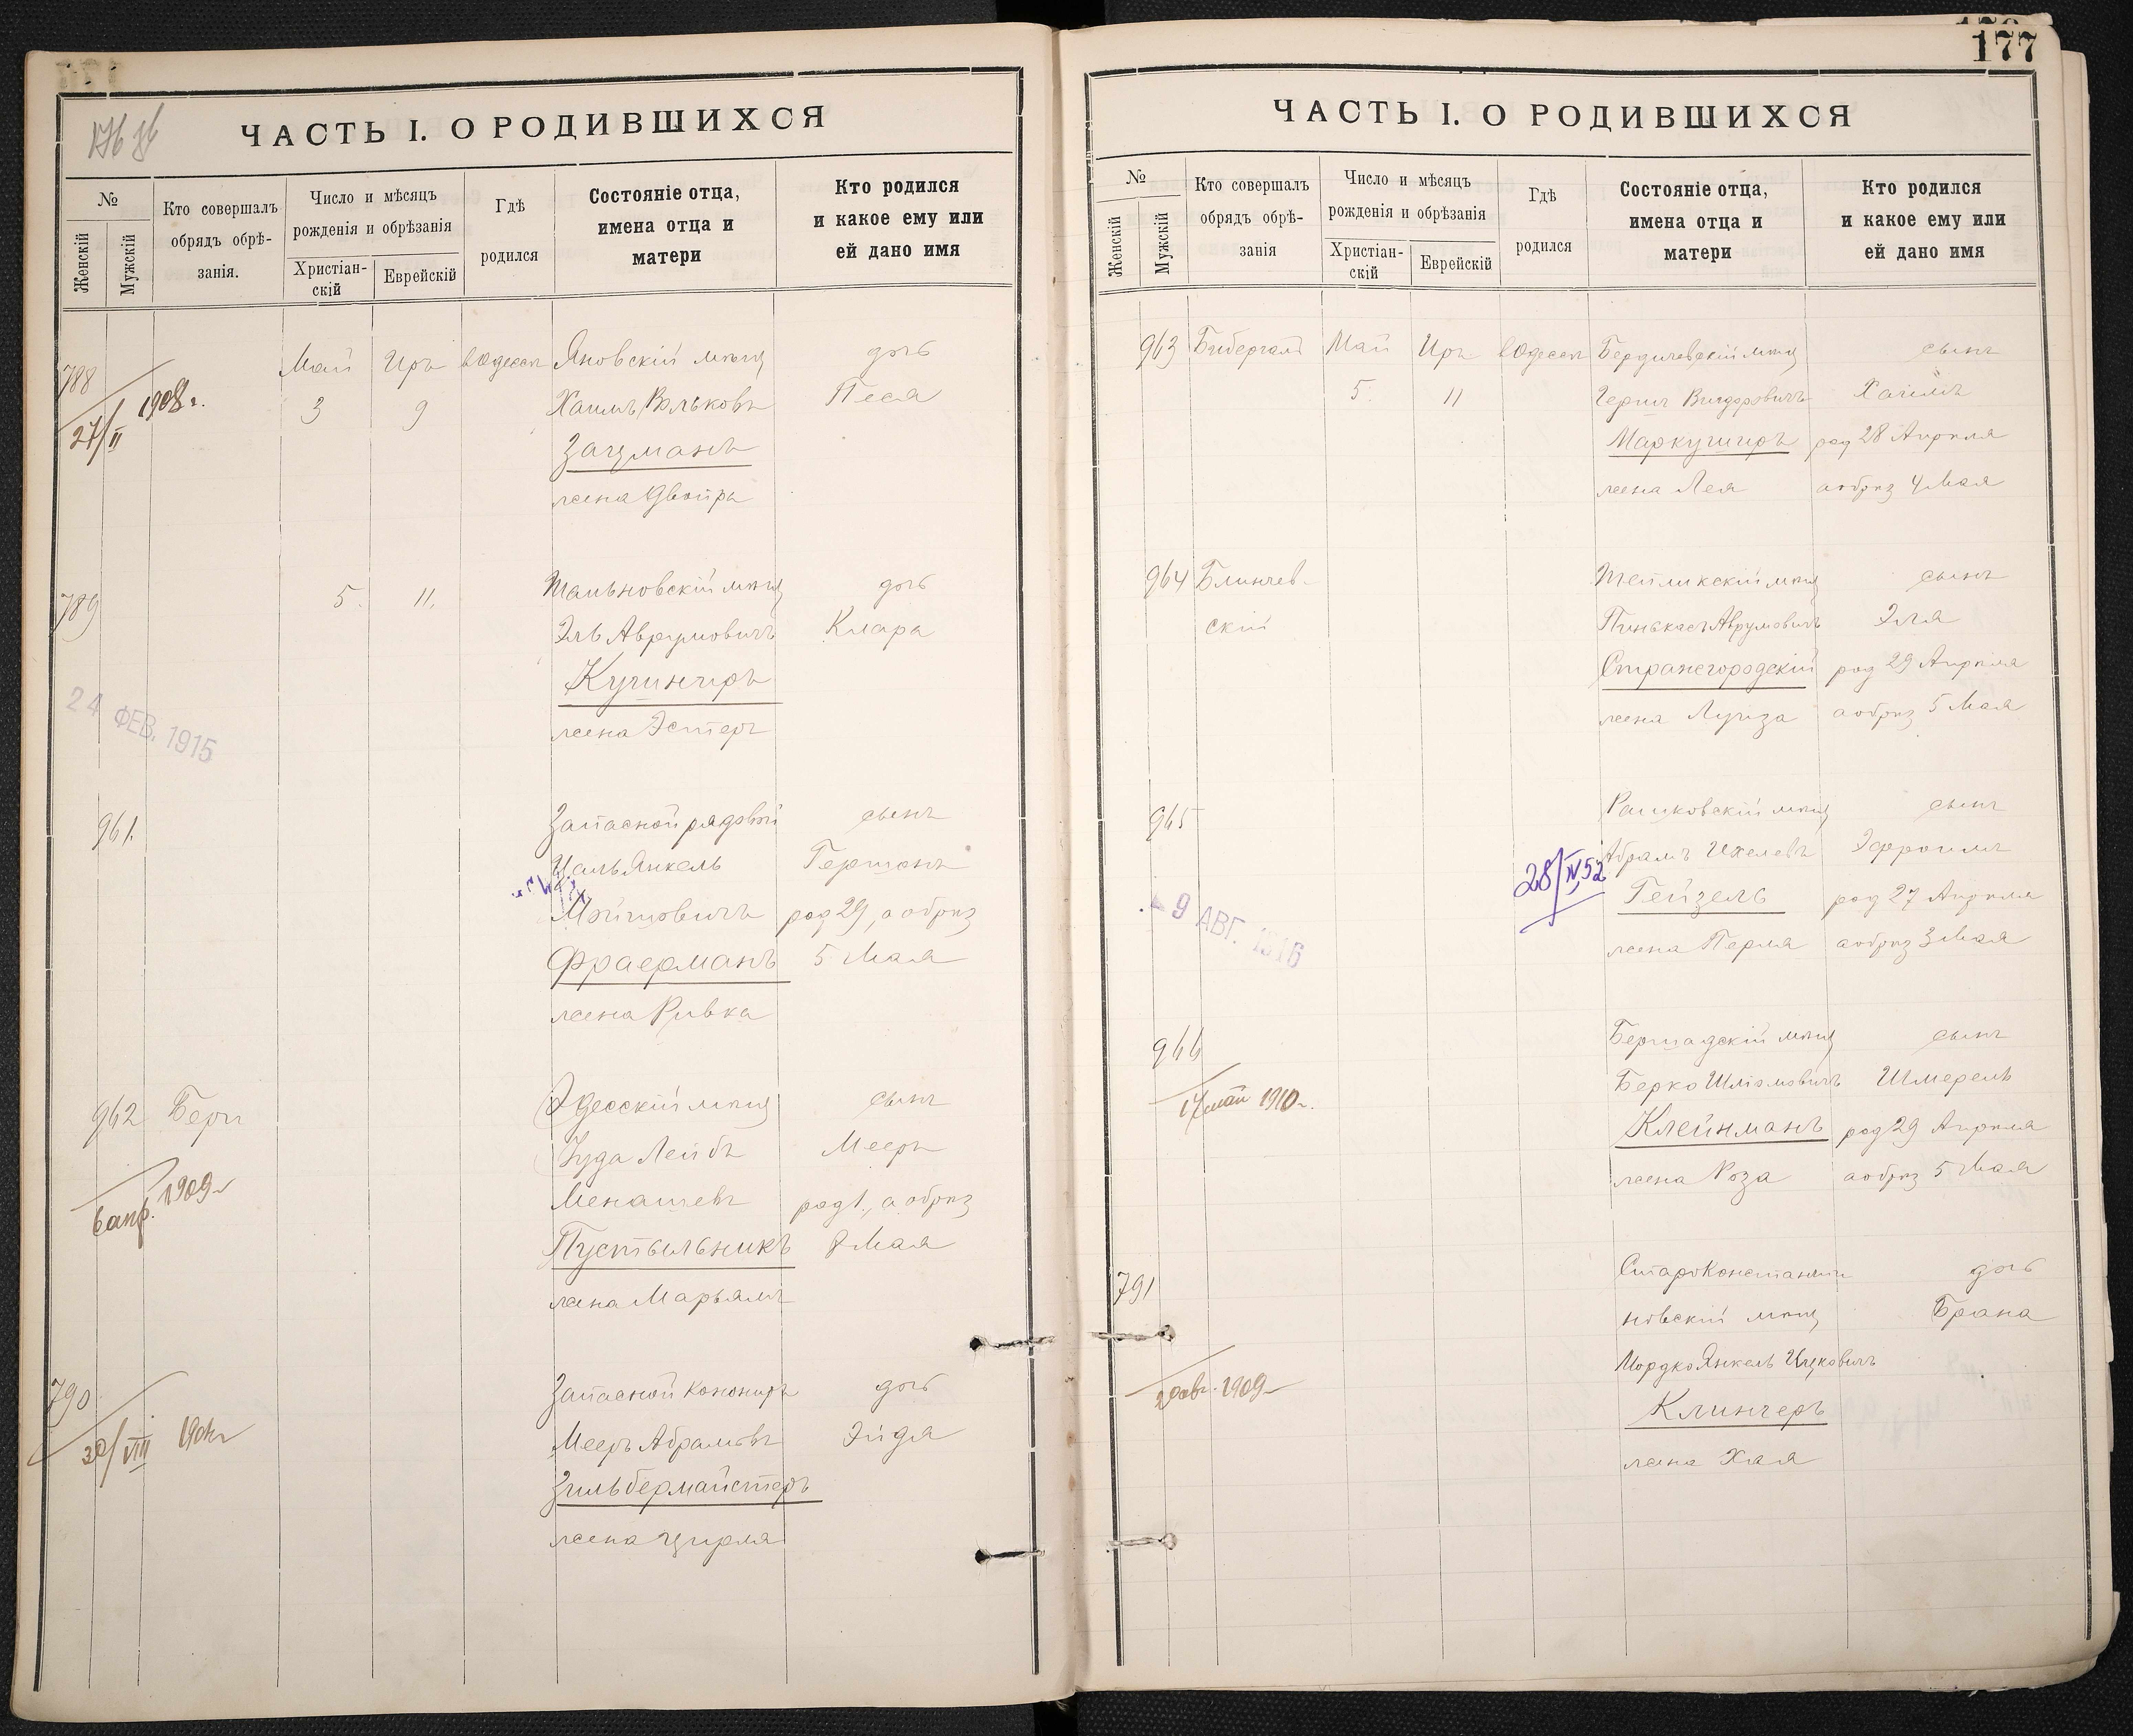 176 об
ЧАСТЬ I. О РОДИВШИХСЯ
№
Женскій
Мужскій
Кто совершалъ
обрядъ обрѣ-
занія.
Число и мѣсяцъ
рожденія и обрѣзанія
Христіан-
скій
Еврейскій
Гдѣ
родился
Состояніе отца,
имена отца и
матери
Кто родился
и какое ему или
ей дано имя
788 Май Иръ вОдессѣ Яновскій мѣщ дочь
27/II 1908 г. 3 9 Хаимъ Вольковъ Песя
Зацманъ
жена Двойра
789 5. 11. Тальновскій мѣщ дочь
Эль Аврумовичъ Клара
Кушниръ
жена Эстеръ
24 ФЕВ. 1915
961. Запасной рядовой сынъ
Цаль Янкель Гершонъ
Мошковичъ род 29, а обрѣз
Фраерманъ 5 Мая
жена Ривка
962 Берг Одесскій мѣщ сынъ
Іуда Лейбъ Мееръ
6 апр. 1909 г Менашевъ род 1., а обрѣз
Пустыльникъ 8 Мая
жена Марьямъ
790 Запасной канониръ дочь
30/VIII Мееръ Абрамовъ Эйдля
Зильбермайстеръ
жена Цирля
177
ЧАСТЬ I. О РОДИВШИХСЯ
№
Женскій
Мужскій
Кто совершалъ
обрядъ обрѣ-
занія
Число и мѣсяцъ
рожденія и обрѣзанія
Христіан-
скій
Еврейскій
Гдѣ
родился
Состояніе отца,
имена отца и
матери
Кто родился
и какое ему или
ей дано имя
963 Бибергалъ Май Иръ вОдессѣ Бердичевскій мѣщ сынъ
5. 11 Гершъ Вигдоровичъ Хаимъ
род 28 Апрѣля
жена Лея а обрѣз 4 Мая
964 Блинчев- Тепликскій мѣщ сынъ
скій Пинькасъ Аврумовичъ Эля
Стражегородскій род 29 Апрѣля
жена Луиза а обрѣз 5 Мая
965 Рашковскій мѣщ сынъ
28/IV 52 Абрамъ Ихелевъ Эфроимъ
Гейзель род 27 Апрѣля
9 АВГ. 1916 жена Перля а обрѣз 3 Мая
966 Бершадскій мѣщ сынъ
17 мая 1910 г. Берко Шліомовичъ Шмерель
Клейнманъ род 29 Апрѣля
жена Роза а обрѣз 5 Мая
791 СтароКонстанти дочь
новскій мѣщ Брана
Мордко Янкель Ицковичъ
1909 г Клингеръ
жена Хая